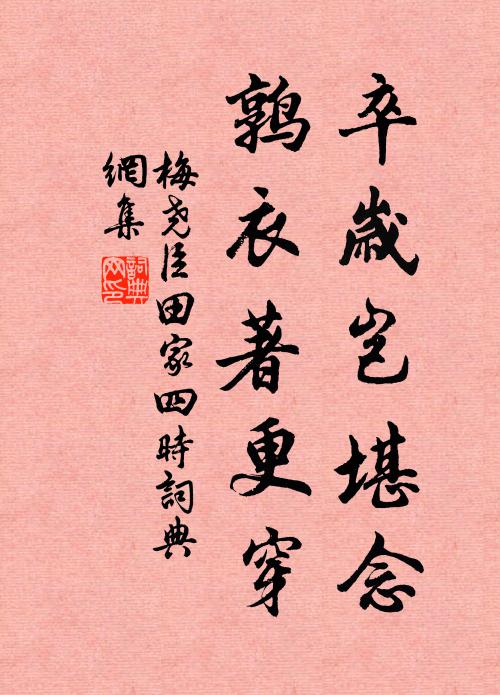 卒歲豈堪念
鶉衣著更穿
梅堯臣田家四時詞典
網集
詞典
网印